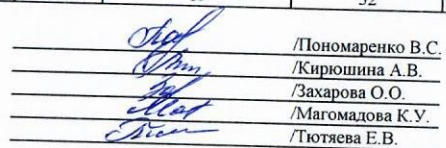 32
/Пономаренко В.С.
/Кирюшина А.В.
/Захарова О.О.
/Магомадова К.У.
/Тютяева Е.В.